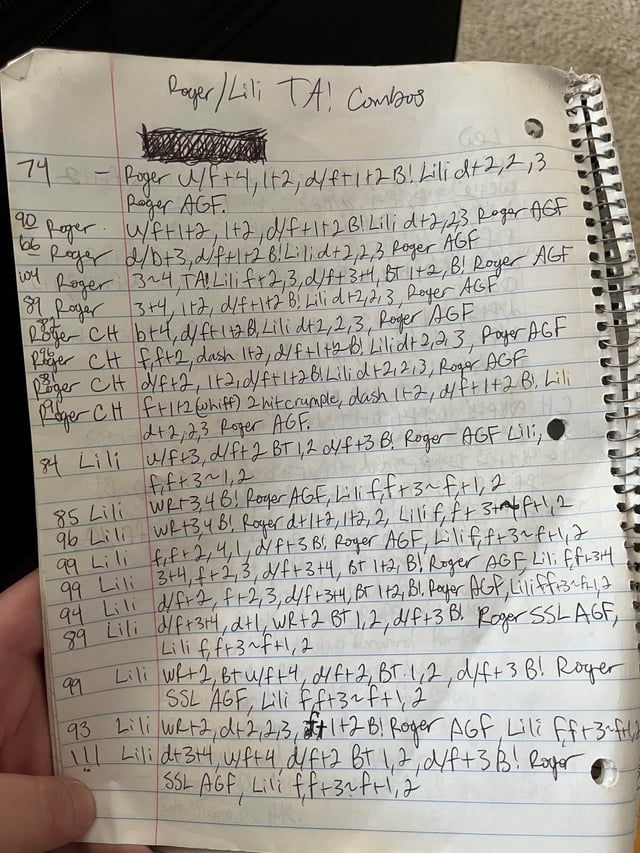 Roger/Lili TA! Combos
74 - Roger u/f+4, 1+2, d/f+1+2 B! Lili d+2, 2, 3
Roger AGF.
90 Roger. u/f+1+2, 1+2, d/f+1+2 B! Lili d+2,2,3 Roger AGF
66 Roger d/b+3, d/f+1+2 B! Lili d+2,2,3 Roger AGF
104 Roger 3~4, TA! Lili f+2,3, d/f+3+4, BT 1+2, B! Roger AGF
89 Roger 3+4, 1+2, d/f+1+2 B! Lili d+2,2,3, Roger AGF
Roger CH b+4, d/f+1+2 B! Lili d+2,2,3, Roger AGF
Roger CH f,f+2, dash 1+2, d/f+1+2 B! Lili d+2,2,3, Roger AGF
Roger CH d/f+2, 1+2, d/f+1+2 B! Lili d+2,2,3, Roger AGF
Roger CH f+1+2 (whiff) 2 hit crumple, dash 1+2, d/f+1+2 B! Lili
d+2,2,3 Roger AGF.
84 Lili u/f+3, d/f+2 BT 1,2 d/f+3 B! Roger AGF Lili,
f,f+3~1,2
85 Lili WR+3,4 B! Roger AGF, Lili f,f+3~f+1,2
96 Lili WR+3,4 B! Roger d+1+2, 1+2,2, Lili f,f+3+ f+1,2
99 Lili f,f+2,4,1, d/f+3 B!, Roger AGF, Lili f,f+3~f+1,2
99 Lili 3+4, f+2,3, d/f+3+4, BT 1+2, B! Roger AGF Lili f,f+3+4
94 Lili d/f+2, f+2,3, d/f+3+4, BT 1+2, B! Roger AGF, Lili f f+3~f+1,2
89 Lili d/f+3+4, d+1, WR+2 BT 1,2, d/f+3 B! Roger SSL AGF,
Lili f,f+3~f+1,2
99 Lili WR+2, BT u/f+4, d/f+2, BT 1,2, d/f+3 B! Roger
SSL AGF, Lili f,f+3~f+1,2
93 Lili WR+2, d+2,2,3, f+1+2 B! Roger AGF, Lili f,f+3~f+1,2
111 Lili d+3+4, u/f+4, d/f+2 BT 1,2, d/f+3 B! Roger
SSL AGF, Lili f,f+3~f+1,2